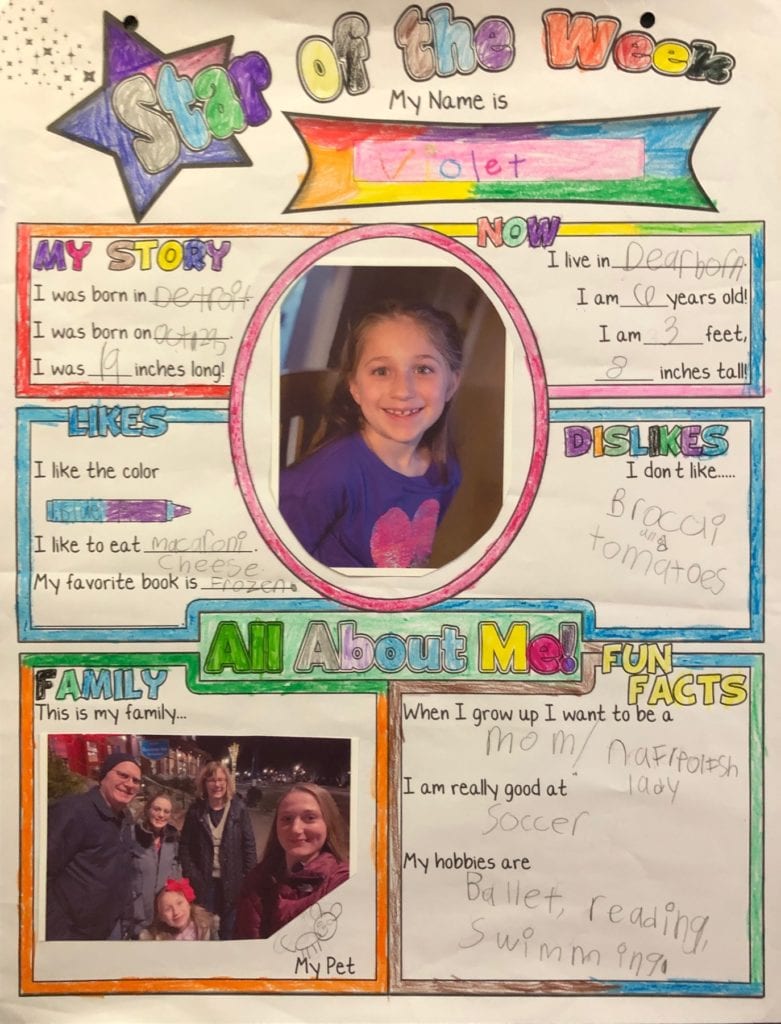 Star of the Week
My Name is
Violet
MY STORY
I was born in Detroit.
I was born on
I was 19 inches long!
NOW
I live in Dearborn.
I am 6 years old!
I am 3 feet,
8 inches tall!
LIKES
I like the color
I like to eat macaroni
cheese.
My favorite book is Frozen.
DISLIKES
I don't like.....
Broccli
and
tomatoes
All About Me!
FAMILY
This is my family...
My Pet
FUN
FACTS
When I grow up I want to be a
mom/ nailpolish
lady
I am really good at
Soccer
My hobbies are
Ballet, reading,
swimming.